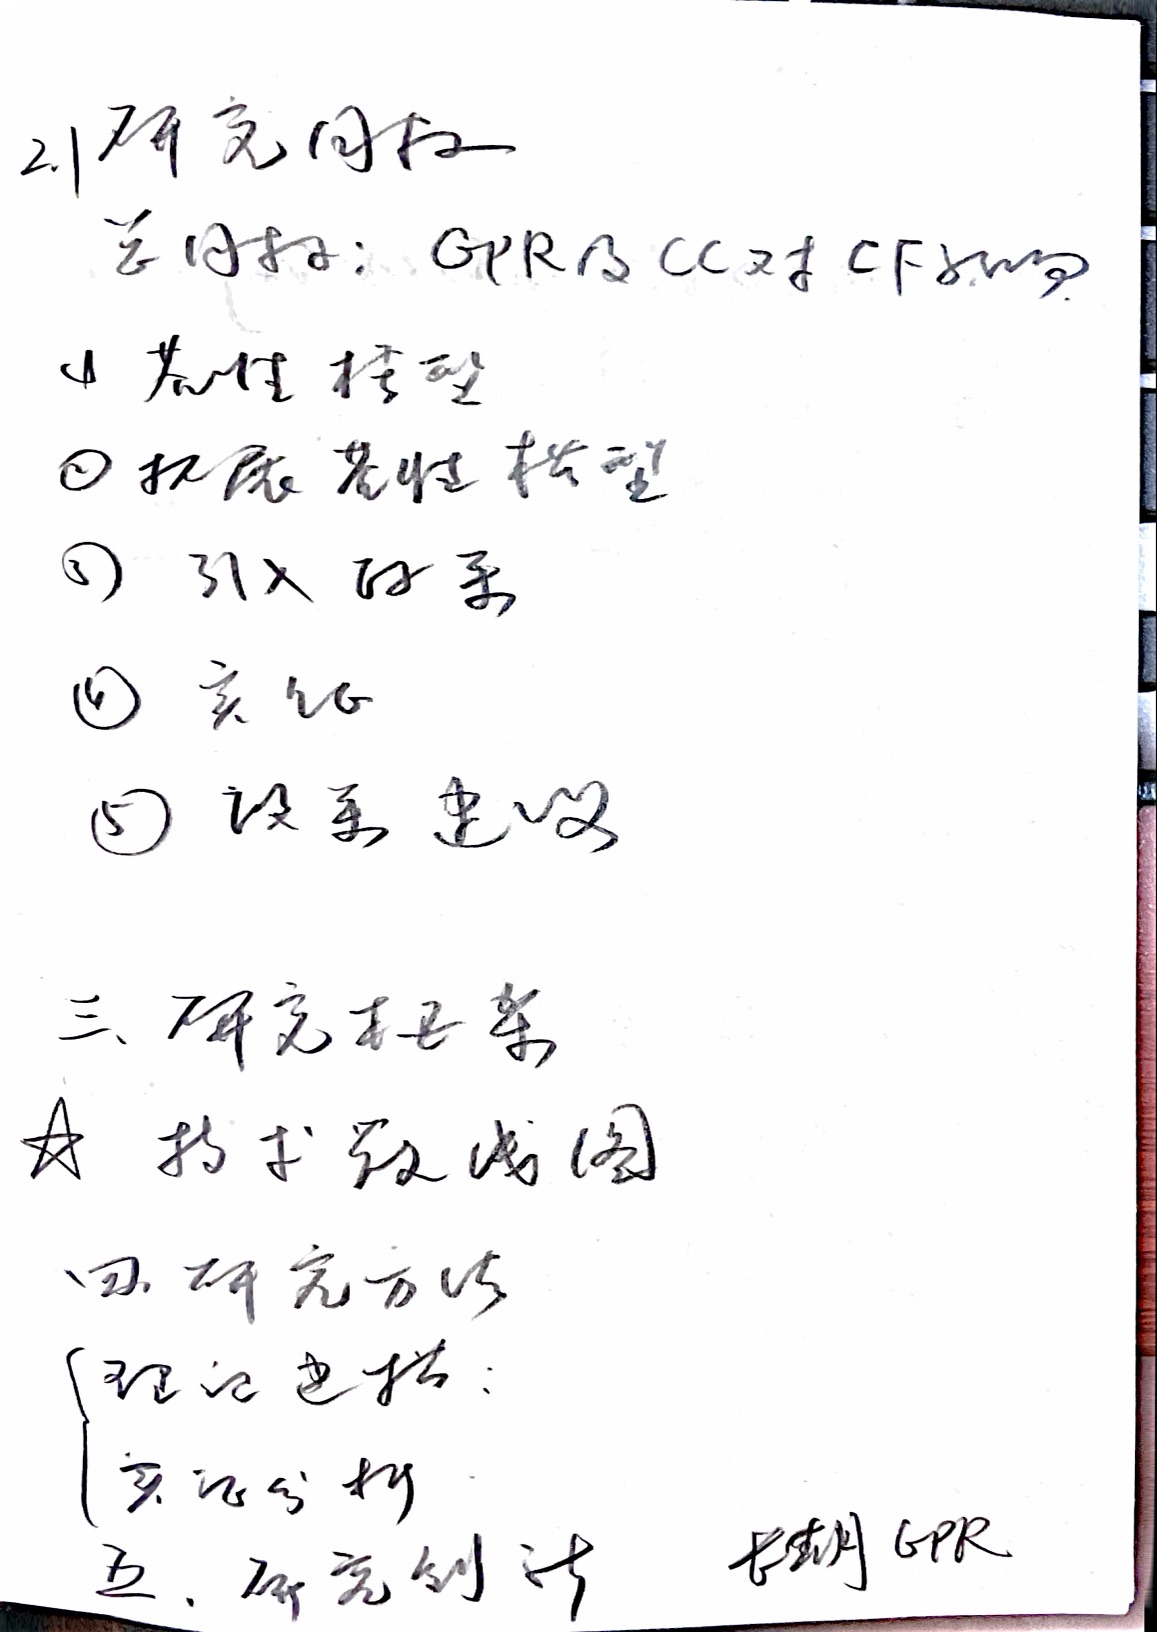 2.1 研究目标
总目标：GPR及CC对CF影响
① 基准模型
② 拓展基准模型
③ 引入政策
④ 实证
⑤ 政策建议
三、研究框架
☆ 技术路线图
四、研究方法
理论建模：
实证分析
五、研究创新
长期GPR